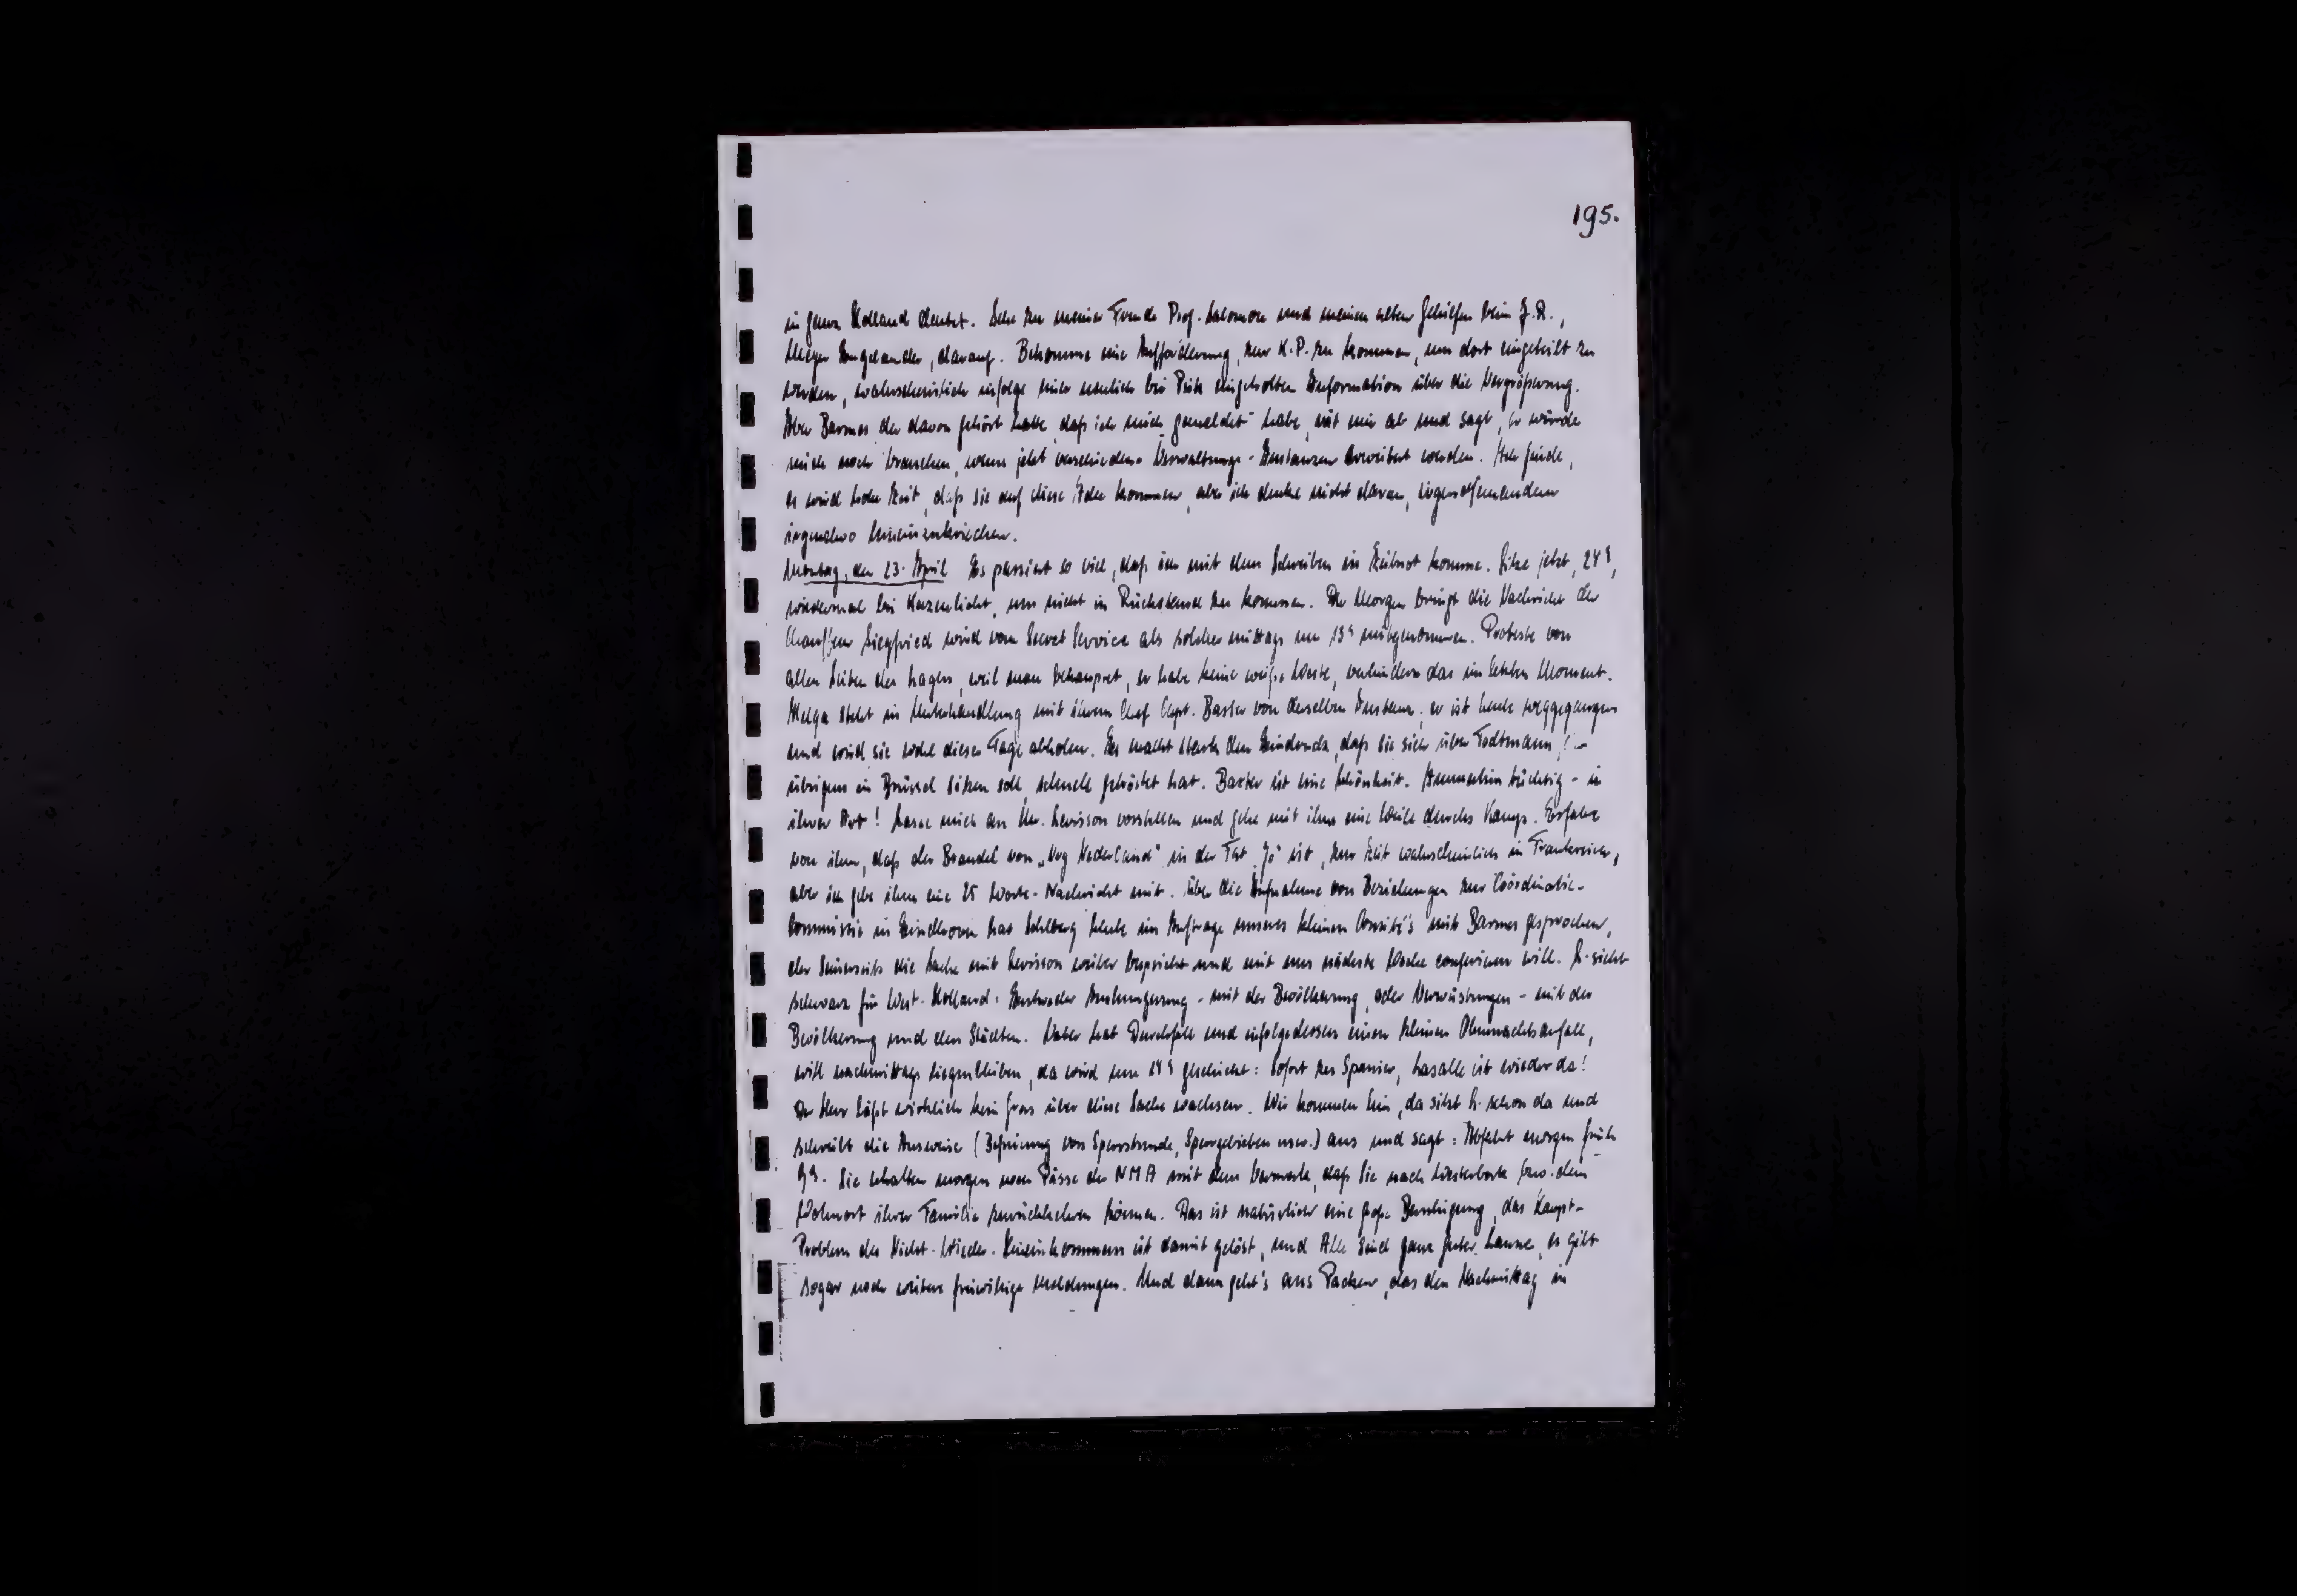 195.
in ganz Holland deutet. Sehe zu meiner Freude Prof. Salomon und meinen alten Gehilfen beim J.R.,
Meyer Engelander, darauf. Bekomme eine Aufforderung, zur K.P. zu kommen, um dort eingeteilt zu
werden, wahrscheinlich infolge einer neulich bei Pick eingeholten Information über die Vergrößerung.
Aber Barmes der davon gehört hatte, daß ich mich gemeldet habe, rät mir ab und sagt, er würde
mich noch brauchen, wenn jetzt verschiedene Verwaltungs-Instanzen erweitert werden. Ich finde,
es wird hohe Zeit, daß sie auf diese Idee kommen, aber ich denke nicht daran, irgendjemandem
irgendwo hineinzukriechen.
Montag, den 23. April Es passiert so viel, daß ich mit dem Schreiben in Zeitnot komme. Sitze jetzt, 24 h,
wiedermal bei Kerzenlicht, um nicht in Rückstand zu kommen. Der Morgen bringt die Nachricht der
Chauffeur Siegfried wird vom Secret Service als solcher mittags um 13 h mitgenommen. Proteste von
allen Seiten des Lagers, weil man behauptet, er habe keine weiße Weste, verhindern das im letzten Moment.
Helga steht in Unterhandlung mit ihrem Chef Capt. Baxter von derselben Instanz; er ist heute weggegangen
und wird sie wohl dieser Tage abholen. Es macht stark den Eindruck, daß sie sich über Todtmann, der
übrigens in Brüssel sitzen soll, schnell getröstet hat. Baxter ist eine Schönheit. Immerhin tüchtig - in
ihrer Art! Lasse mich an Mr. Levisson vorstellen und gehe mit ihm eine Weile durchs Kamp. Erfahre
von ihm, daß der Brandel von „Vrij Nederland" in der Tat „Jo" ist, zur Zeit wahrscheinlich in Frankreich,
aber ich gebe ihm eine 25 Worte-Nachricht mit. Über die Aufnahme von Beziehungen zur Coördinatie-
Commissie in Eindhoven hat Schlberg heute im Auftrage unseres kleinen Comité's mit Barmes gesprochen,
der seinerseits die Sache mit Levisson weiter bespricht und mit uns nächste Woche conferieren will. L. sieht
schwarz für West-Holland: Entweder Aushungerung - mit der Bevölkerung, oder Verwüstungen - mit der
Bevölkerung und den Städten. Vater hat Durchfall und infolgedessen einen kleinen Ohnmachtsanfall,
will nachmittags liegenbleiben, da wird um 14 h geschickt: Sofort zu Spanier, Lasalle ist wieder da!
Der Herr läßt wirklich kein Gras über diese Sache wachsen. Wir kommen hin, da sitzt L. schon da und
schreibt die Ausweise (Befreiung von Sperrstunde, Sperrgebieten usw.) aus und sagt: Abfahrt morgen früh
9 h. Sie erhalten morgen noch Pässe der NMA mit dem Vermerk, daß Sie nach Westerbork bzw. dem
Wohnort ihrer Familie zurückkehren können. Das ist natürlich eine große Beruhigung, das Haupt-
Problem des Nicht-Wieder-Hineinkommens ist damit gelöst, und Alle sind ganz guter Laune, es gibt
sogar noch weitere freiwillige Meldungen. Und dann geht's ans Packen, das den Nachmittag in